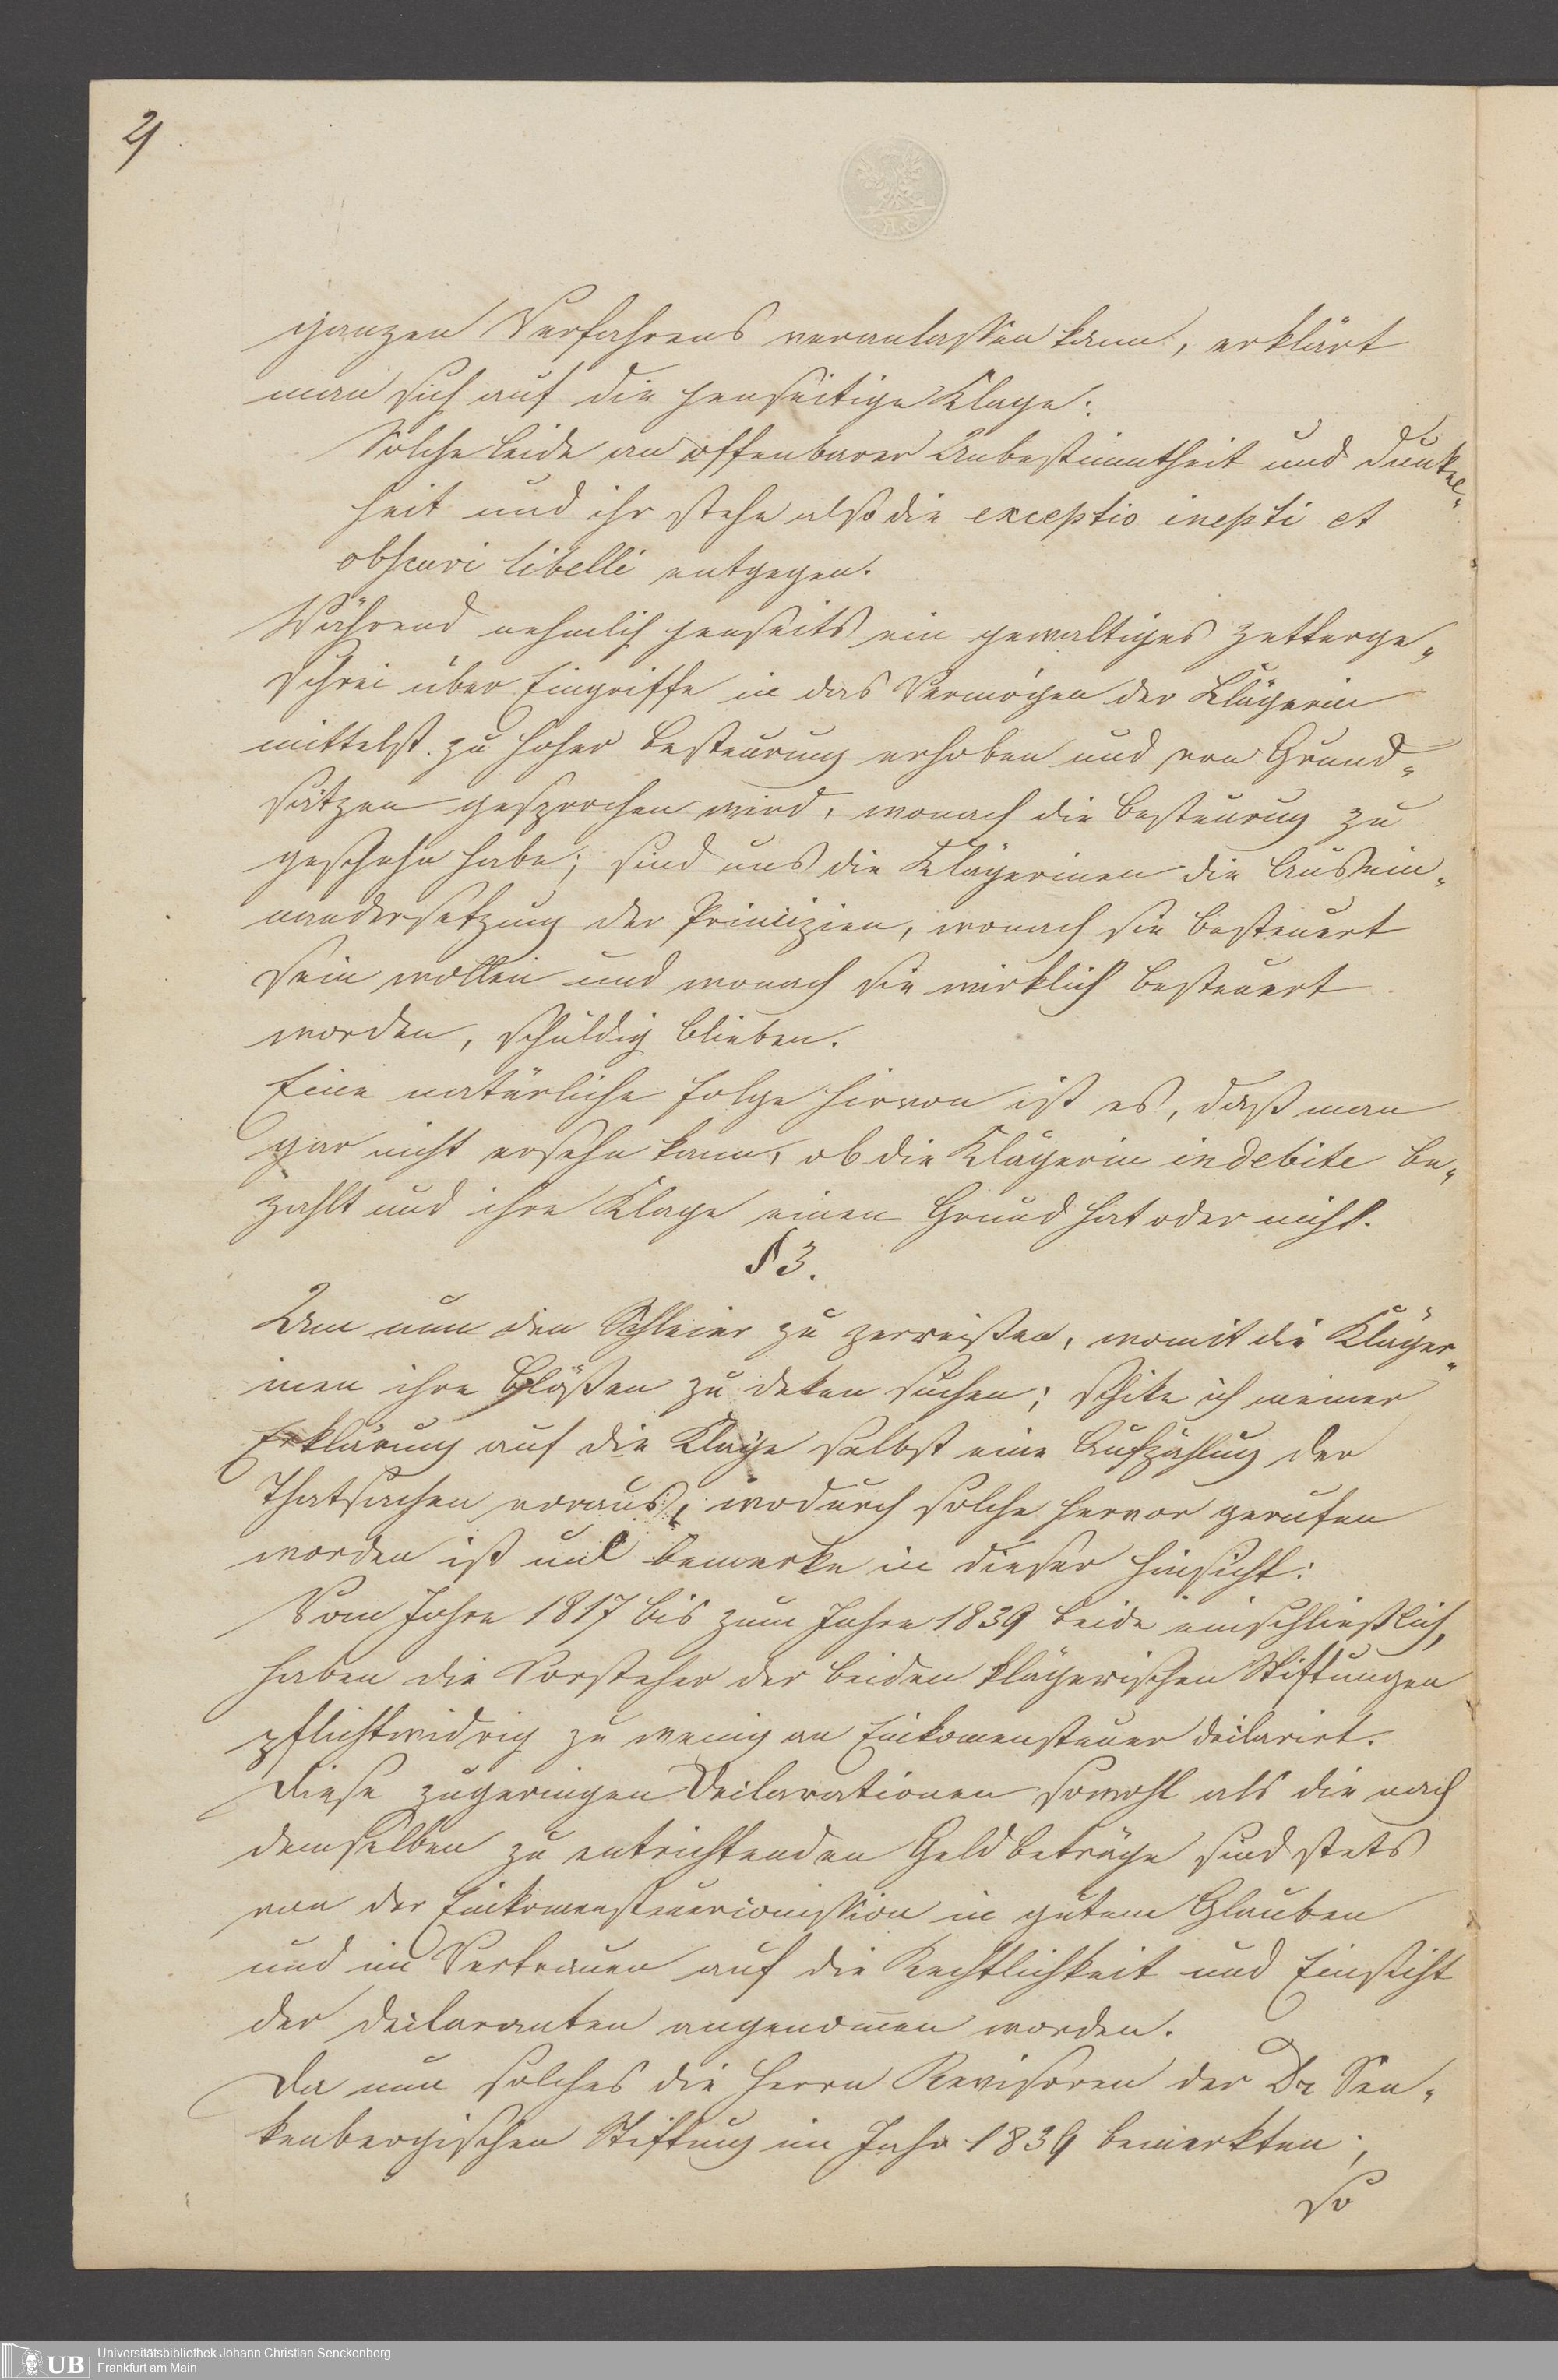 2)
ganzen Verfahrens veranlassen kann, erklärt
man sich auf die jenseitige Klage:
Solche leide an offenbarer Unbestimmtheit und Dunkel-
heit und ihr stehe also die exceptio inepti et
obscuri libelli entgegen.
Während nehmlich jenseits ein gewaltiges Zetterge-
schrei über Eingriffe in das Vermögen der Klägerin
mittelst zu hoher Besteurung erhoben und von Grund-
sätzen gesprochen wird, wonach die Besteurung zu
geschehn habe; sind uns die Klägerinen die Ausein-
andersetzung der Prinzipien, wonach sie besteuert
sein wollen und wonach sie wirklich besteuert
worden, schuldig blieben.
Eine natürliche Folge hiervon ist es, daß man
gar nicht ersehn kann, ob die Klägerin indebite be-
zahlt und ihre Klage einen Grund hat oder nicht.
§ 3.
Um nun den Schleier zu zerreißen, womit die Kläger-
inen ihre Blößen zu deken suchen; schike ich meiner
Erklärung auf die Klage selbst eine Aufzählung der
Thatsachen voraus, wodurch solche hervor gerufen
worden ist und bemerke in dieser Hinsicht:
Vom Jahre 1817 bis zum Jahre 1839 beide einschließlich,
haben die Vorsteher der beiden klägerischen Stiftungen
pflichtwidrig zu wenig an Einkomensteuer declarirt.
Diese zugeringen Declarationen sowohl als die nach
demselben zu entrichtenden Geldbeträge sind stets
von der Einkomensteuercomission in gutem Glauben
und im Vertrauen auf die Rechtlichkeit und Einsicht
der Declaranten angenomen worden.
Da nun solches die Herrn Revisoren der Dr Sen-
kenbergischen Stiftung im Jahr 1839 bemerkten;
so
Universitätsbibliothek Johann Christian Senckenberg
Frankfurt am Main
UB